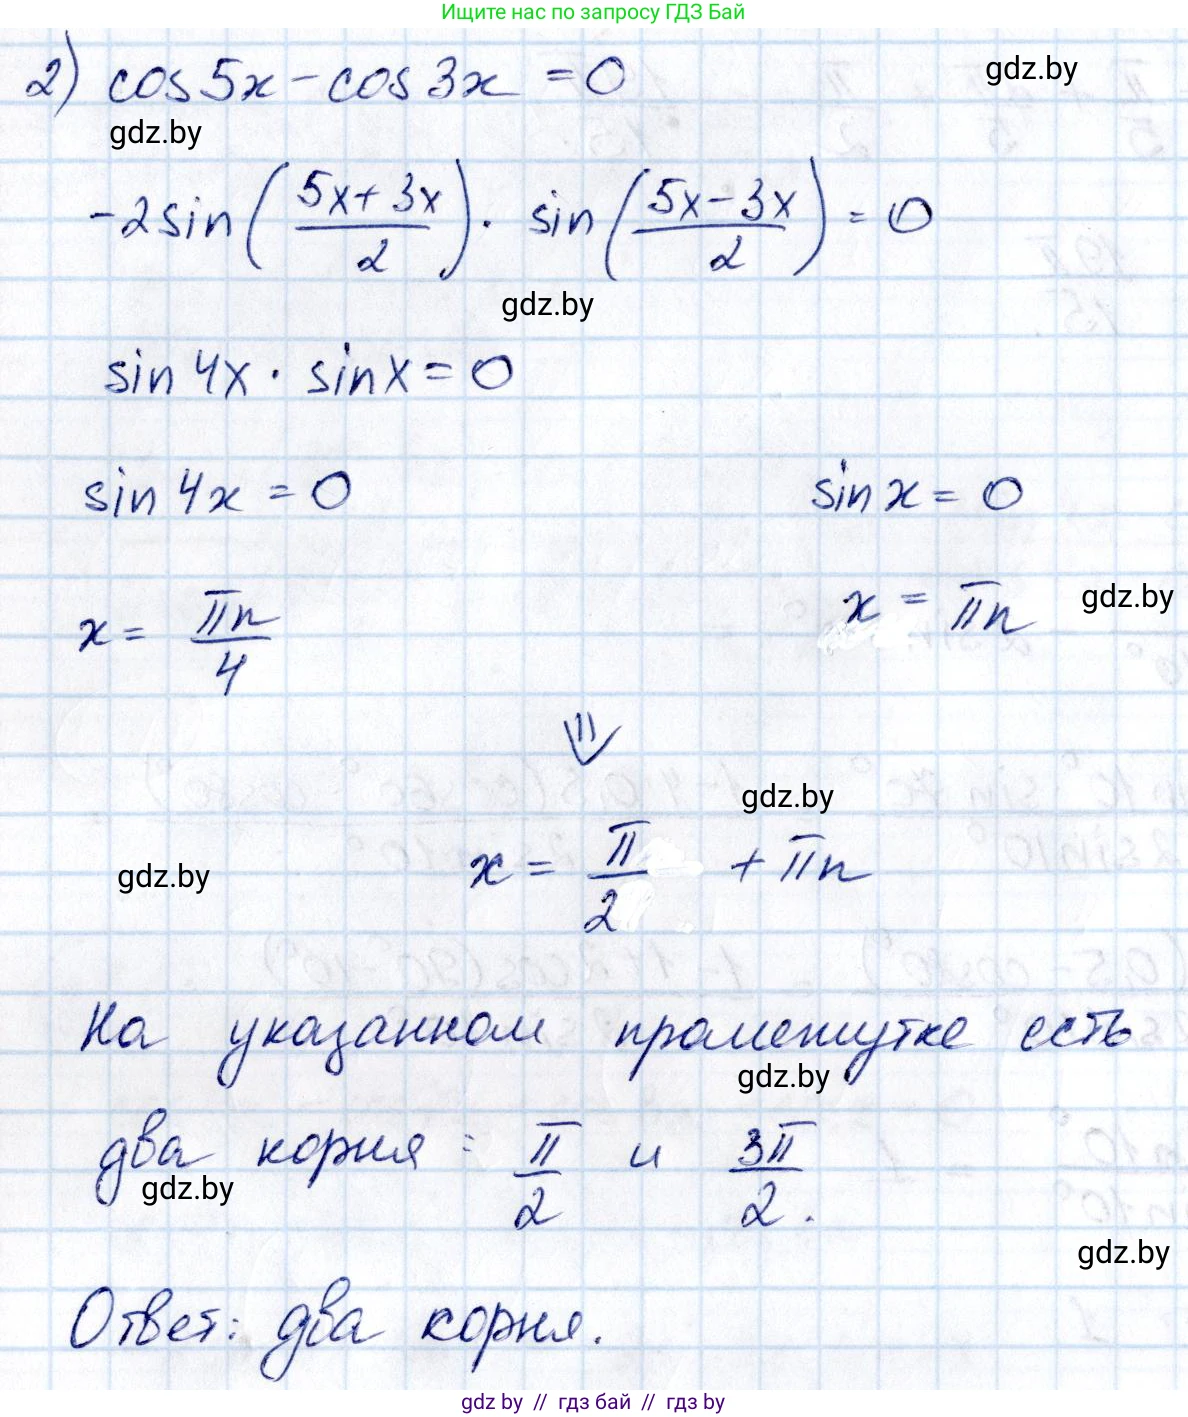 Ищите нас по запросу ГДЗ Бай
2) cos5x - cos3x = 0
gdz.by
gdz.by
-2sin((5x+3x)/2) · sin((5x-3x)/2) = 0
gdz.by
sin4x · sinx = 0
sin4x = 0 sinx = 0
x = πn/4 x = πn
gdz.by
⇓
gdz.by
x = π/2 + πn
gdz.by
На указанном промежутке есть
gdz.by
два корня: π/2 и 3π/2.
gdz.by
gdz.by
Ответ: два корня.
gdz by // гдз бай // gdz by